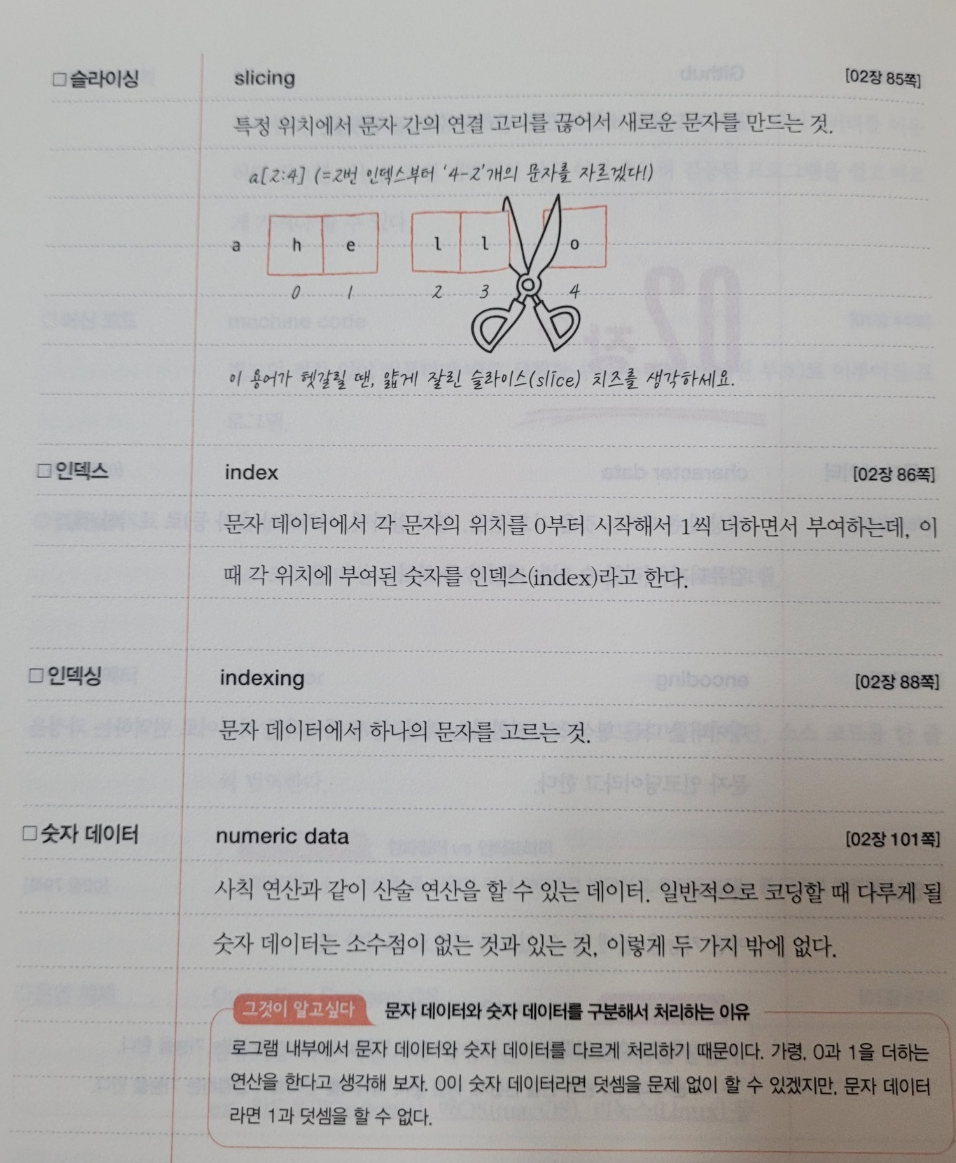 □ 슬라이싱 slicing [02장 85쪽]
특정 위치에서 문자 간의 연결 고리를 끊어서 새로운 문자를 만드는 것.
a[2:4] (=2번 인덱스부터 '4-2'개의 문자를 자르겠다!)
a h e l l o
0 1 2 3 4
이 용어가 헷갈릴 땐, 얇게 잘린 슬라이스(slice) 치즈를 생각하세요.
□ 인덱스 index [02장 86쪽]
문자 데이터에서 각 문자의 위치를 0부터 시작해서 1씩 더하면서 부여하는데, 이
때 각 위치에 부여된 숫자를 인덱스(index)라고 한다.
□ 인덱싱 indexing [02장 88쪽]
문자 데이터에서 하나의 문자를 고르는 것.
□ 숫자 데이터 numeric data [02장 101쪽]
사칙 연산과 같이 산술 연산을 할 수 있는 데이터. 일반적으로 코딩할 때 다루게 될
숫자 데이터는 소수점이 없는 것과 있는 것, 이렇게 두 가지 밖에 없다.
그것이 알고싶다 문자 데이터와 숫자 데이터를 구분해서 처리하는 이유
로그램 내부에서 문자 데이터와 숫자 데이터를 다르게 처리하기 때문이다. 가령, 0과 1을 더하는
연산을 한다고 생각해 보자. 0이 숫자 데이터라면 덧셈을 문제 없이 할 수 있겠지만, 문자 데이터
라면 1과 덧셈을 할 수 없다.